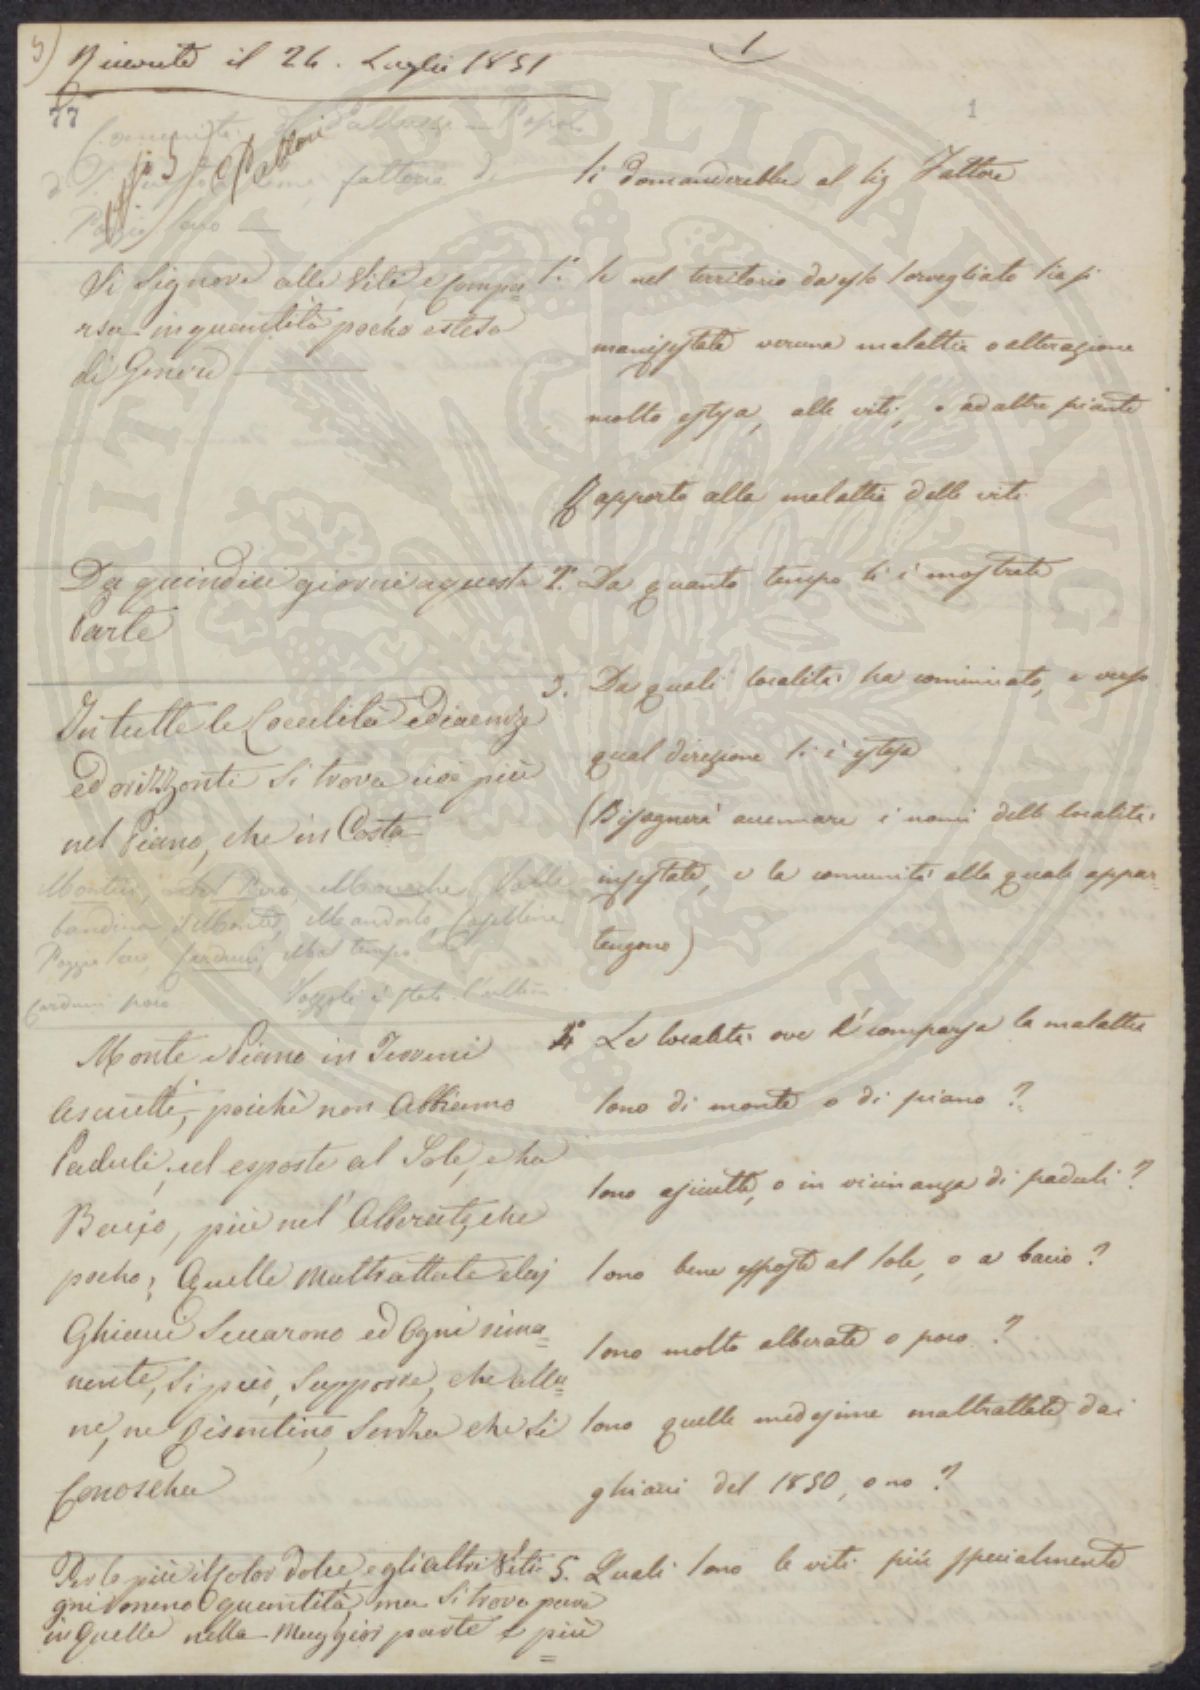 3)
Ricevuta il 24. Luglio 1851
1
77
1
Comunità di
fattoria di
Poggio
Si domanderebbe al Sig Fattore
Si Signore alle Viti, e Compa
rsa in quantità pocho estesa
di Genere
1.° Se nel territorio da esso sorvegliato siasi
manifestata veruna malattia o alterazione
molto estesa, alle viti, o ad altre piante
Rapporto alla malattia delle viti
Da quindici giorni a questa
Parte
2.° Da quanto tempo si è mostrata
In tutte le Località
ed orizzonti si trova cioè più
nel Piano, che in Costa
Monte, Mandorlo, Casellina
Mal tempo
Carduni poco Poggioli è stato l'ultim
3. Da quali località ha cominciato, e verso
qual direzione si è estesa
(Bisognerà accennare i nomi delle località
infestate, e la comunità alla quale appar-
tengono)
Monte e Piano in Terreni
asciutti, poichè non Abbiamo
Paduli, ed esposte al Sole, e ha
Bacio, più nel' Alberate, che
pocho; Quelle Maltrattate da
Ghiacci Seccarono ed Ogni rima=
nente, Si può, Supporre, che allu=
ne, ne Risentino, Senza che Si
Conoscha
4.° Le località ove è comparsa la malattia
Sono di monte o di piano?
Sono asciutte, o in vicinanza di paduli?
Sono bene esposte al Sole, o a bacio?
Sono molto alberate o poco?
Sono quelle medesime maltrattate dai
ghiacci del 1850, o no?
Per lo più il Color dolce e gli altri Viti
gni meno quantità, ma Si trova pure
in Quelle nella Maggior parte e più
5. Quali Sono le viti più specialmente